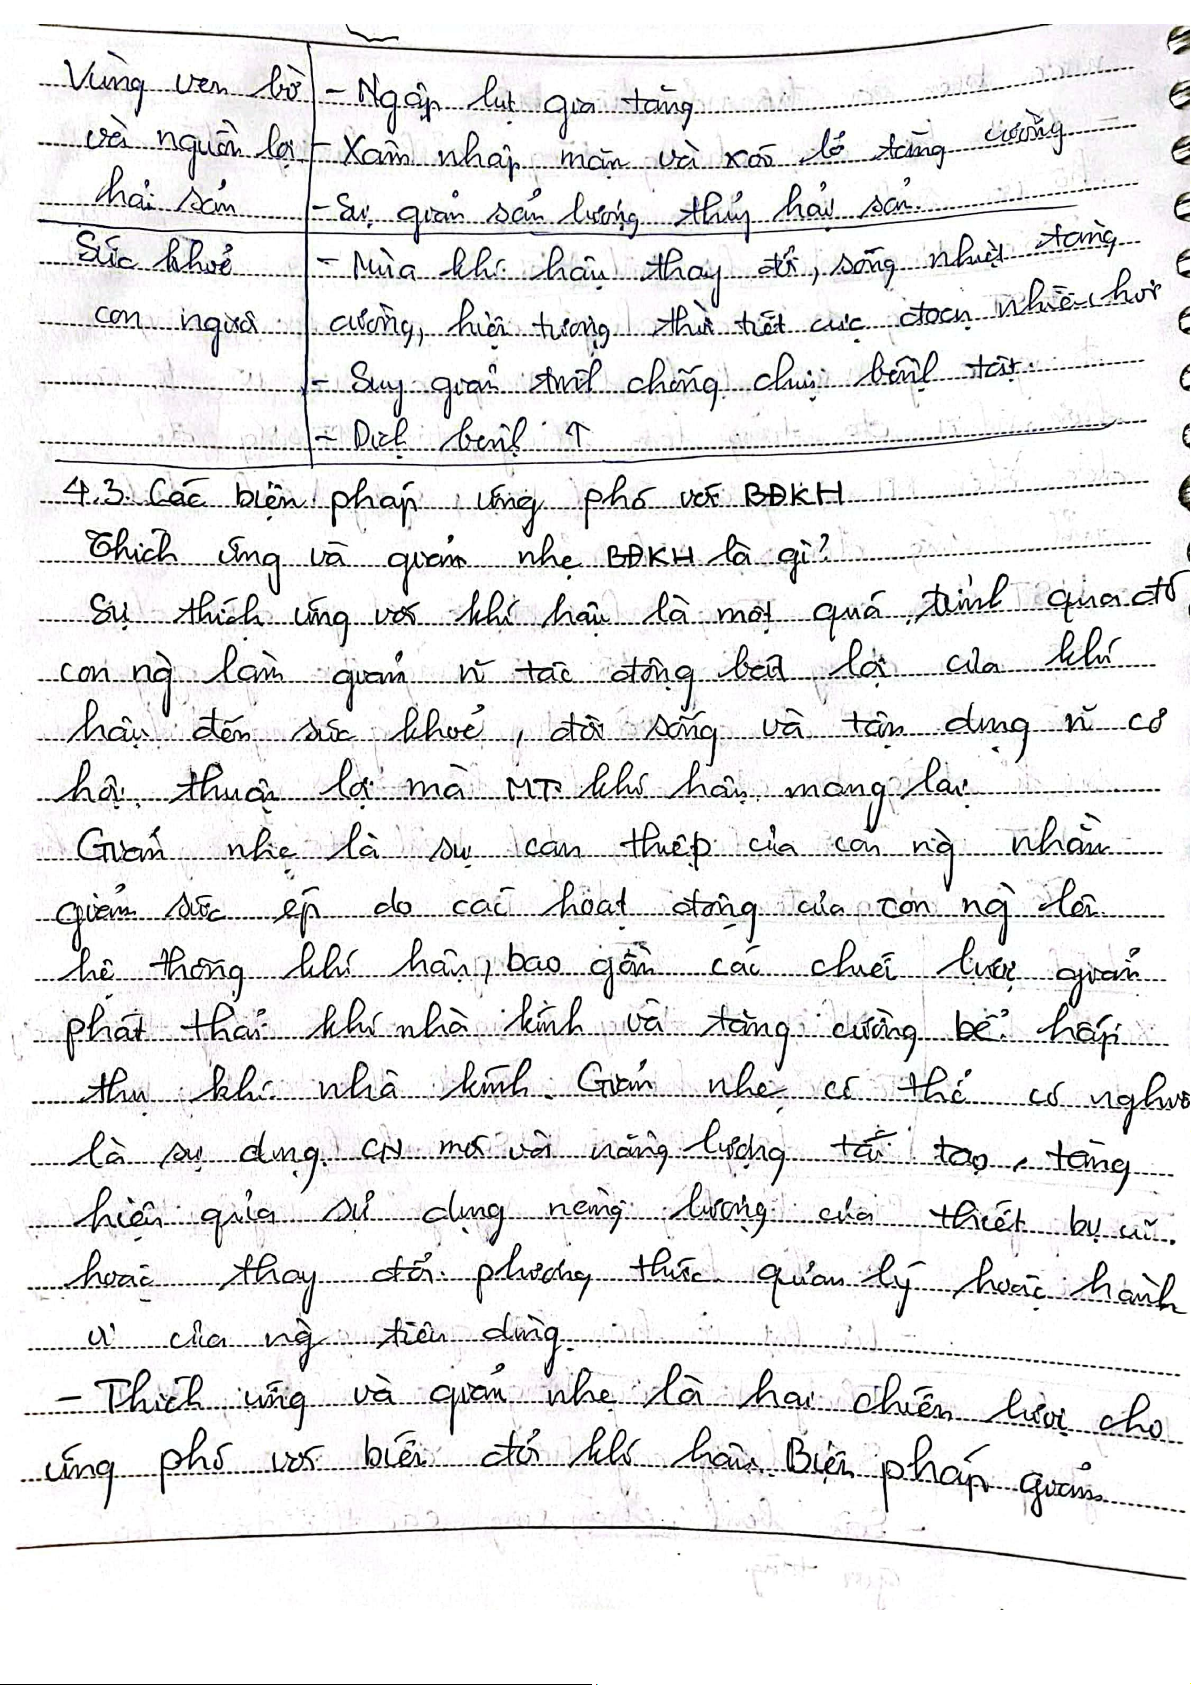 Vùng ven bờ - Ngập lụt gia tăng
và nguồn lợi - Xâm nhập mặn và xói lở tăng cường
hải sản - Sụ giản sản lượng thủy hải sản.
Sức khoẻ - Mùa khí hậu thay đổi, sóng nhiệt tăng
con người cường, hiện tượng thời tiết cực đoan nhiều hơn
- Suy giảm tính chống chịu bệnh tật.
- Dịch bệnh ↑
4.3. Các biện pháp ứng phó với BĐKH
Thích ứng và giảm nhẹ BĐKH là gì?
Sự thích ứng với khí hậu là một quá trình qua đó
con ng` làm giảm ~ tác động bất lợi của khí
hậu đến sức khoẻ, đời sống và tận dụng ~ cơ
hội thuận lợi mà MT khí hậu mang lại
Giảm nhẹ là sự can thiệp của con ng` nhằm
giảm sức ép do các hoạt động của con ng` lên
hệ thống khí hậu, bao gồm các chiến lược giảm
phát thải khí nhà kính và tăng cường bể hấp
thụ khí nhà kính. Giảm nhẹ có thể có nghĩa
là sử dụng CN mới và năng lượng tái tạo, tăng
hiệu quả sử dụng năng lượng của thiết bị cũ.
hoặc thay đổi phương thức quản lý hoặc hành
vi của ng` tiêu dùng.
- Thích ứng và giảm nhẹ là hai chiến lược cho
ứng phó với biến đổi khí hậu. Biện pháp giảm